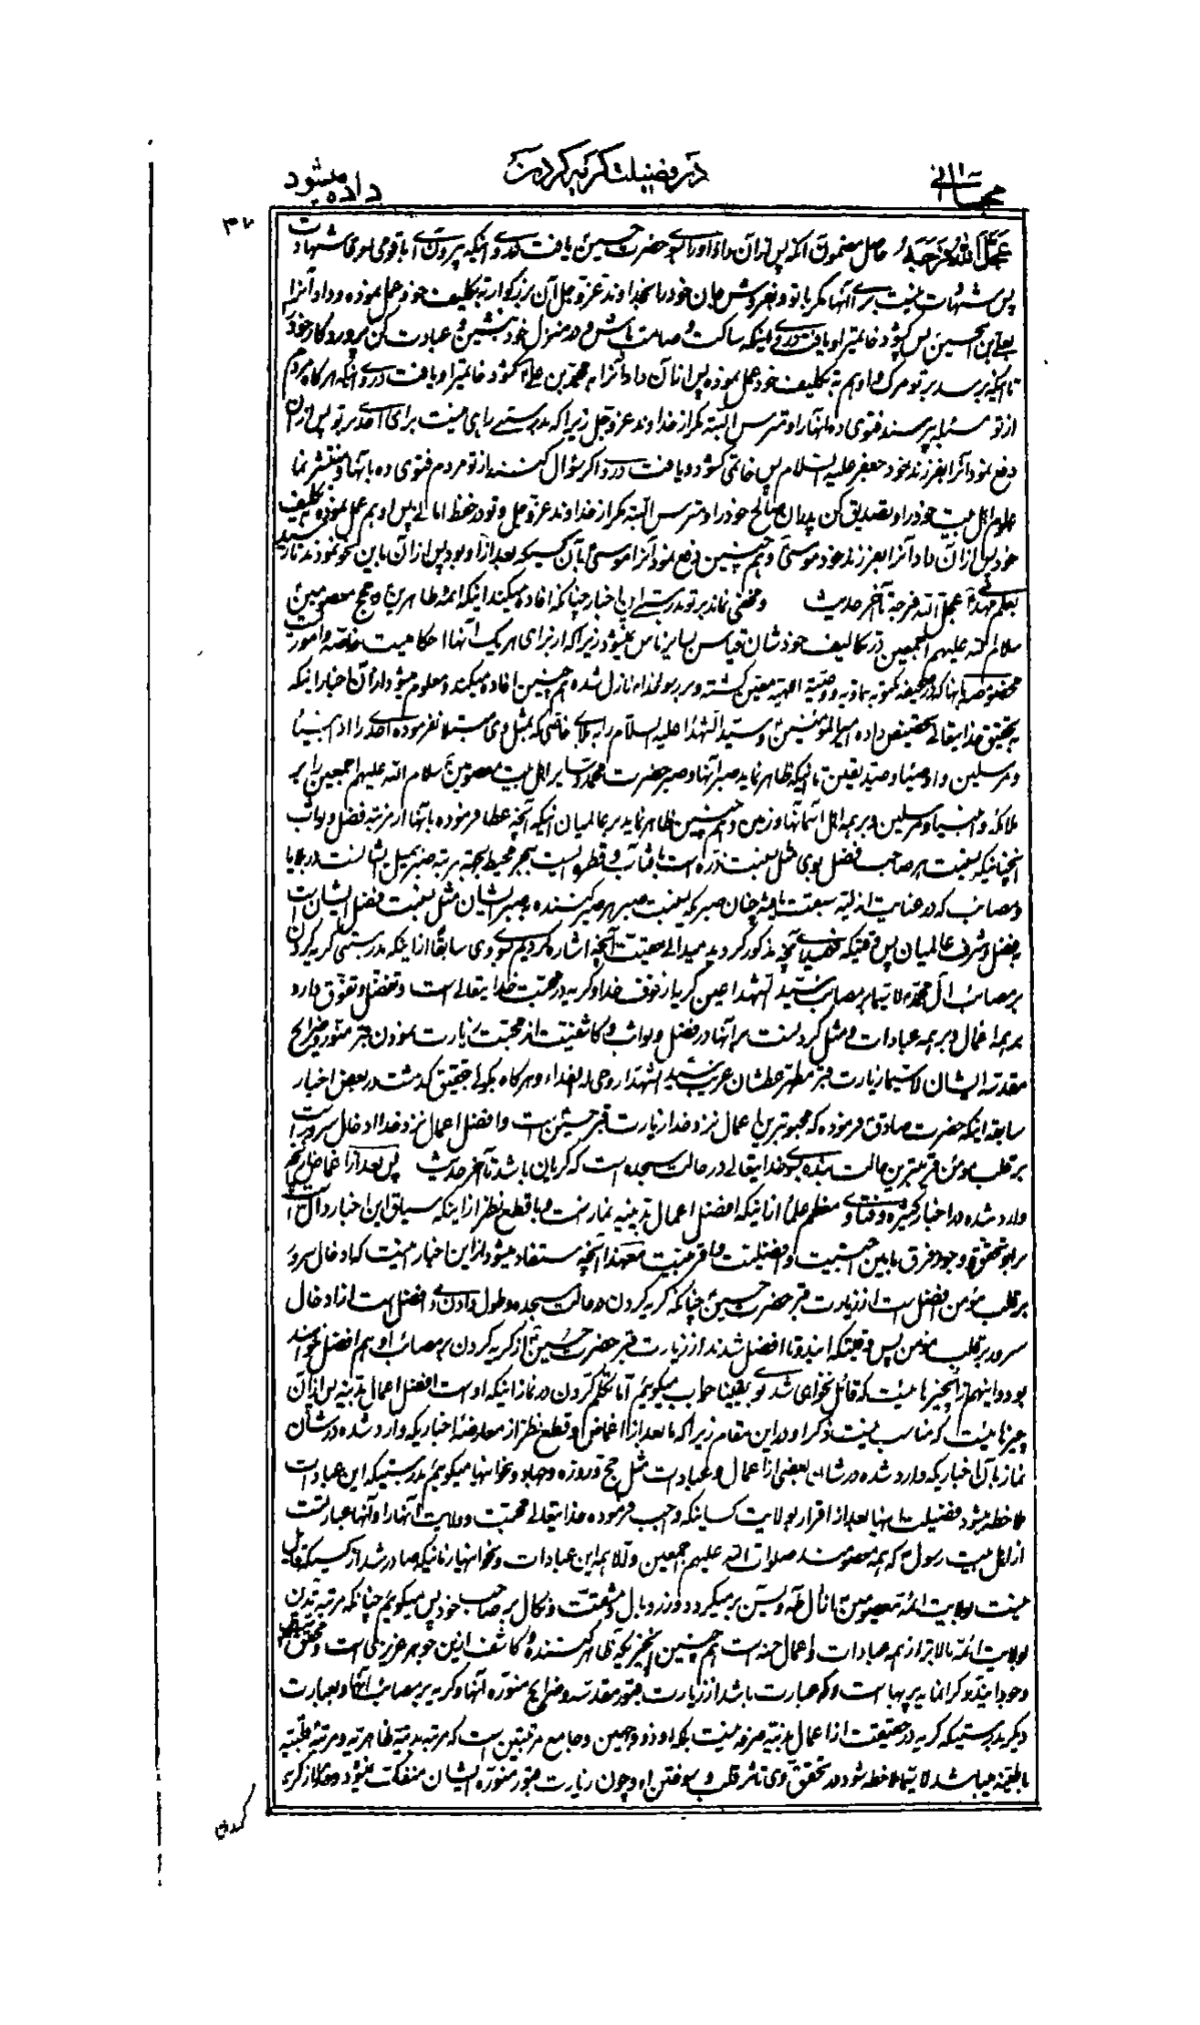 در فضیلت گریه کردن
داده میشود
۳۷
عجل الله فرجه حاصل مضمون آنکه پس از آن داد او را بسوی حضرت حسین یافت در وی اینکه بیرون با قومی بسوی شهادت
پس شهادت نیست برای آنها مگر با تو و بفروش جان خود را بخداوند عزوجل آن بزرگوار به تکلیف خود عمل نموده و داد آنرا
بعلی بن الحسین پس گشود خاتم را و یافت در وی اینکه ساکت و صامت باش و در منزل خود بنشین و عبادت کن پروردگار خود
تا اینکه برسد بر تو مرگ و او هم به تکلیف خود عمل نموده پس از آن داد آنرا به محمد بن علی گشود خاتم را و یافت در وی اینکه هرگاه مردم
از تو مسئله پرسند فتوی ده آنها را و مترس البته مگر از خداوند عزوجل زیرا که بدرستی راهی نیست برای احدی بر تو پس از آن
دفع نمود آنرا بفرزند خود جعفر علیه السلام پس خاتمی گشود و یافت در وی اگر سؤال کنند از تو مردم فتوی ده بآنها و منتشر نما
علوم اهل بیت خود را و تصدیق کن پدران صالح خود را و مترس البته مگر از خداوند عزوجل و تو در حفظ امانی پس او هم عمل نموده تکلیف
خود پس از آن داد آنرا بفرزند خود موسی و هم چنین دفع نمود آنرا موسی بآن کسیکه بعد از او بود پس از آن باین نحو نمودند تا رسید
بقائم مهدی عجل الله فرجه تا آخر حدیث و مخفی نماند بر تو بدرستی این اخبار چنانکه افاده میکند اینکه ائمه طاهرین و حجج معصومین
سلام الله علیهم اجمعین در تکالیف خودشان قیاس بسایر ناس نمیشود زیرا که از برای هر یک آنها احکامیست خاصه و امور
مخصوصه بآنها که در صحیفه مکتوبه سماویه و وصیت الهیه معین گشته و بر رسول خدا نازل شده هم چنین افاده میکند و معلوم میشود از آن اخبار اینکه
به تحقیق خدایتعالی تخصیص داده امیرالمؤمنین و سید الشهدا علیه السلام را به بلای خاصی که بمثل وی مبتلا نفرموده احدی را از انبیا
و مرسلین و اوصیا و صدیقین تا اینکه ظاهر نماید صبر آنها و صبر حضرت محمد و سایر اهل بیت معصومین سلام الله علیهم اجمعین را بر
ملائکه و انبیا و مرسلین و بر همه اهل آسمانها و زمین و هم چنین ظاهر نماید بر عالمیان اینکه آنچه عطا فرموده بآنها از مرتبه فضل و ثواب
آنچنانیکه نسبت هر صاحب فضل بوی مثل نسبت ذره است بآفتاب و قطره ایست ببحر محیط بجهة مرتبه صبر جمیل ایشانست در بلایا
و مصائب که در عنایت ازلیه سبقت یافته چنان صبر که نسبت صبر هر صبر کننده بصبر ایشان مثل نسبت فضل ایشان است
بفضل و شرف عالمیان پس وقتیکه فهمیدی آنچه مذکور گردید میدانی حقیقت آنچه اشاره کردیم بسوی وی سابقا از اینکه بدرستی گریه کردن
بر مصائب آل محمد لاسیما بر مصائب سید الشهدا عین گریه از خوف خدا و گریه در محبت خدایتعالی است و تفضل و تفوق دارد
بر همه اعمال و بر همه عبادات و مثل گریستن بر آنها در فضل و ثواب و کاشفیت از محبت زیارت نمودن قبر منور و ضرایح
مقدسه ایشان لاسیما زیارت قبر مطهر عطشان غریب سید الشهدا روحی له الفداء و هرگاه بگوئی تحقیق گذشت در بعض اخبار
سابقه اینکه حضرت صادق فرموده که محبوبترین اعمال نزد خدا زیارت قبر حسین است و افضل اعمال نزد خدا ادخال سرور است
بر قلب مؤمن قریبترین حالت بنده بسوی خدایتعالی در حالت سجده است که گریان باشد تا آخر حدیث پس بعد از اغماض از آنچه
وارد شده در اخبار کثیره و فتاوی معظم علما از اینکه افضل اعمال بدنیه نماز است و با قطع نظر از اینکه سیاق این اخبار دال است
بر تحقق و وجود فرق مابین احبیت و افضلیت و اقربیت معهذا آنچه مستفاد میشود از این اخبار اینست که ادخال سرور
بر قلب مؤمن افضل است از زیارت قبر حضرت حسین چنانکه گریه کردن در حالت سجده و طول دادن وی افضل است از ادخال
سرور بر قلب مؤمن پس وقتیکه ایندو تا افضل شدند از زیارت قبر حضرت حسین از گریه کردن بر مصائب او هم افضل خواهند
بود و اینهم از چیزهائیست که قائل نخواهی شد بوی یقینا جواب میگویم اما تکلم کردن در نماز اینکه او است افضل اعمال بدنیه پس از آن
چیزهائیست که مناسب نیست ذکر او در این مقام زیرا که ما بعد از اغماض و قطع نظر از معارضه اخباریکه وارد شده در شأن
نماز بآن اخباریکه وارد شده در شأن بعضی از اعمال و عبادات مثل حج و روزه و جهاد و نحو اینها میگوئیم بدرستیکه این عبادات
ملاحظه میشود فضیلت اینها بعد از اقرار بولایت کسانیکه واجب فرموده خدایتعالی محبت و ولایت آنها را و آنها عبارتست
از اهل بیت رسول که همه معصومند صلوات الله علیهم اجمعین و الا همه این عبادات و نحو اینها زمانیکه صادر شد از کسیکه قایل
نیست بولایت ائمه معصومین از آل طه و یس بر میگردد وزر و وبال و مشقت و نکال بر صاحب خود پس میگویم چنانکه مرتبه تدین
بولایت ائمه بالاتر از همه عبادات و اعمال حسنه است هم چنین آنچیزیکه ظاهر کننده و کاشف از این جوهر عزیز یکی است و محقق
وجود ایندر گرانمایه پر بهاست و که عبارت باشد از زیارت قبور مقدسه و ضرایح منوره آنها و گریه بر مصائب آنها و بعبارت
دیگر بدرستیکه گریه در حقیقت از اعمال بدنیه صرفه نیست بلکه او ذو وجهین و جامع مرتبتین است که مرتبه بدنیه ظاهریه و مرتبه قلبیه
باطنیه میباشد لاسیما ملاحظه شود در تحقق وی تأثر قلب و سوختن او و چون زیارت قبور منوره ایشان منفک نمیشود از گریه
کردن